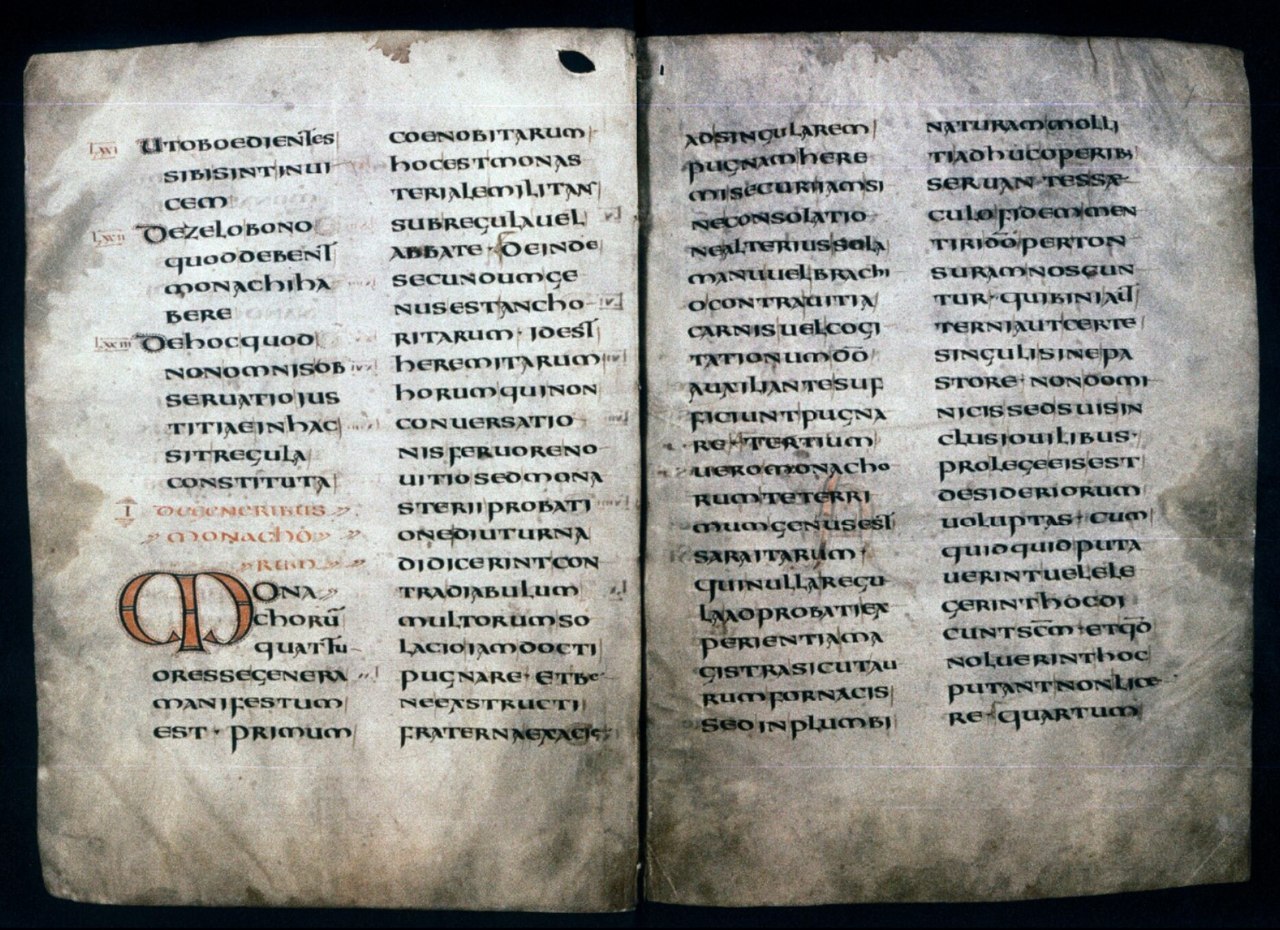 LXXI UTOBOEDIENTES
SIBISINTINUI
CEM
LXXII DEZELOBONO
QUODDEBENT
MONACHIHA
BERE
LXXIII DEHOCQUOD
NONOMNISOB
SERUATIOIUS
TITIAEINHAC
SITREGULA
CONSTITUTA
I DEGENERIBUS
MONACHO
RUM
MONA
CHORU̅
QUATTU
ORESSEGENERA
MANIFESTUM
EST · PRIMUM
COENOBITARUM
HOCESTMONAS
TERIALEMILITANS
SUBREGULAUEL
ABBATE · DEINDE
SECUNDUMGE
NUSESTANCHO
RITARUM · IDEST
HEREMITARUM
HORUMQUINON
CONUERSATIO
NISFERUORENO
UITIOSEDMONA
STERIIPROBATI
ONEDIUTURNA
DIDICERINTCON
TRADIABULUM
MULTORUMSO
LACIOIAMDOCTI
PUGNARE · ETBE
NEEXSTRUCTI
FRATERNAEXACIE
ADSINGULAREM
PUGNAMHERE
MISECURIIAMSI
NECONSOLATIO
NEALTERIUSSOLA
MANUUELBRACHI
OCONTRAUITIA
CARNISUELCOGI
TATIONUMD̅O̅
AUXILIANTESUF
FICIUNTPUGNA
RE · TERTIUM
UEROMONACHO
RUMTETERRI
MUMGENUSEST
SARAITARUM ·
QUINULLAREGU
LAADPROBATIEX
PERIENTIAMA
GISTRASICUTAU
RUMFORNACIS
SEDINPLUMBI
NATURAMMOLLI
TIADHUCOPERIB;
SERUANTESSAE
CULOFIDEMMEN
TIRID̅O̅PERTON
SURAMNOSCUN
TUR · QUIBINIAUT
TERNIAUTCERTE
SINGULISINEPA
STORE · NONDOMI
NICISSEDSUISIN
CLUSIOUILIBUS ·
PROLEGEEISEST
DESIDERIORUM
UOLUPTAS · CUM
QUIDQUIDPUTA
UERINTUELELE
GERINTHOCDI
CUNTSC̅M · ETQ̅D̅
NOLUERINTHOC
PUTANTNONLICE
RE · QUARTUM